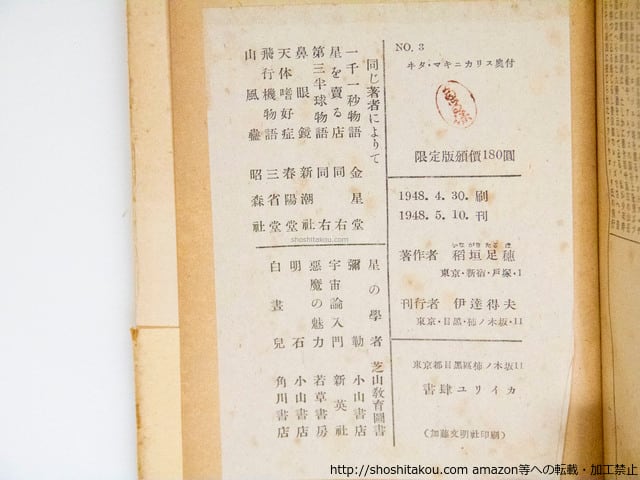 NO. 3
ヰタ・マキニカリス奥付
限定版頒價180圓
1948. 4. 30. 刷
1948. 5. 10. 刊
著作者 稻垣足穂
東京・新宿・戸塚・1
刊行者 伊達得夫
東京・目黒・柿ノ木坂・11
東京都目黒區柿ノ木坂11
書肆ユリイカ
(加藤文明社印刷)
同じ著者によりて
一千一秒物語 金星堂
星を賣る店 同右
第三半球物語 同右
鼻眼鏡 新潮社
天体嗜好症 春陽堂
飛行機物語 三省堂
山風蠱 昭森社
星の學者 芝山教育圖書
彌勒 小山書店
宇宙論入門 新英社
惡魔の魅力 若草書房
明石 小山書店
白晝兒 角川書店
shoshitakou.com
http://shoshitakou.com amazon等への転載・加工禁止